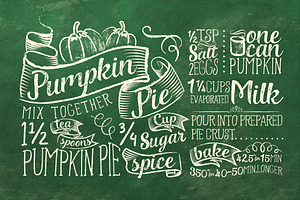 Pumpkin
Pie
MIX TOGETHER
1½ Tea spoons
PUMPKIN PIE
spice
¾ Cup
Sugar
½ TSP
Salt
2 EGGS
one
can
PUMPKIN
1¼ CUPS
EVAPORATED
Milk
POUR INTO PREPARED
PIE CRUST
bake
425 in 15 MIN
350 in 40-50 MIN. LONGER